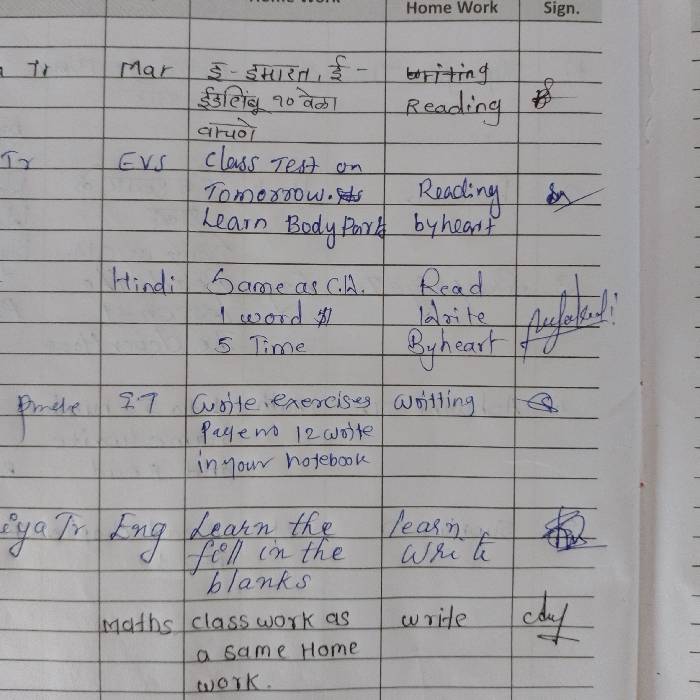 Home Work Home Work Sign.
Tr Mar इ - इमारत, ई - Writing
ईडलिंबू १० वेळा Reading
वाचणे
Tr EVS Class Test on
Tomorrow. Reading
Learn Body Part byheart
Hindi Same as C.W. Read
1 word Write
5 Time Byheart
I.T Write exercises writting
Page no 12 write
in your notebook
iya Tr. Eng Learn the learn
fill in the write
blanks
Maths class work as write
a same Home
work.